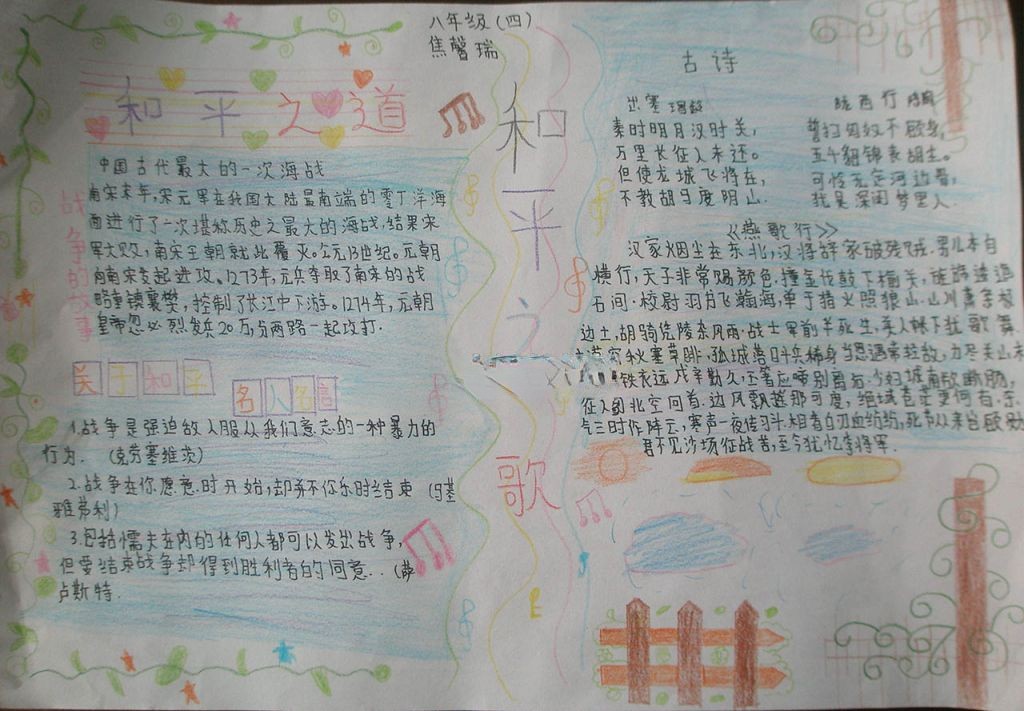 八年级(四)
焦馨瑞
和平之道
战争的故事
中国古代最大的一次海战
南宋末年,宋元军在我国大陆最南端的零丁洋海
面进行了一次堪称历史之最大的海战,结果宋
军大败,南宋王朝就此覆灭。公元13世纪。元朝
向南宋发起进攻。1273年,元兵夺取了南宋的战
略重镇襄樊,控制了长江中下游。1274年,元朝
皇帝忽必烈发兵20万,分两路一起攻打.
关于和平
名人名言
1.战争是强迫敌人服从我们意志的一种暴力的
行为. (克劳塞维茨)
2.战争在你愿意时开始,却并不你乐时结束 (马基
雅弗利)
3.包括懦夫在内的任何人都可以发出战争,
但要结束战争却得到胜利者的同意.. (萨
卢斯特.
和平之歌
古诗
出塞
秦时明月汉时关,
万里长征人未还。
但使龙城飞将在,
不教胡马度阴山.
陇西行 陈陶
誓扫匈奴不顾身,
五千貂锦丧胡尘。
可怜无定河边骨,
犹是深闺梦里人.
《燕歌行》
汉家烟尘在东北,汉将辞家破残贼.男儿本自
横行,天子非常赐颜色.摐金伐鼓下榆关,旌旆逶迤
石间.校尉羽书飞瀚海,单于猎火照狼山.山川萧条极
边土,胡骑凭陵杂风雨.战士军前半死生,美人帐下犹歌舞.
穷秋塞草腓,孤城落日斗兵稀身当恩遇常轻敌,力尽关山未
铁衣远戍辛勤久,玉箸应啼别离后.少妇城南欲断肠,
征人蓟北空回首.边风飘飖那可度,绝域苍茫更何有.杀
气三时作阵云,寒声一夜传刁斗.相看白刃血纷纷,死节从来岂顾勋
君不见沙场征战苦,至今犹忆李将军.